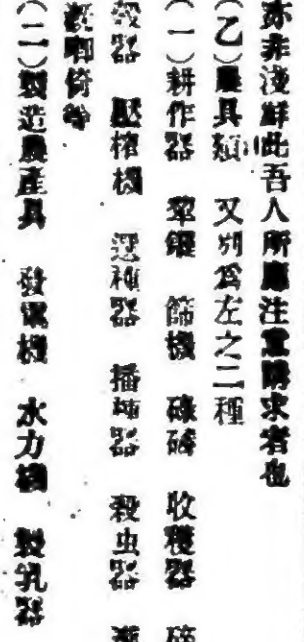 亦非淺鮮此吾人所應注意講求者也
(乙)農具類 又別爲左之二種
(一)耕作器 犂鏵 篩機 碌碡 收穫器
穀器 壓榨機 選種器 播種器 殺虫器
等
(二)製造農產具 發電機 水力機 製乳器